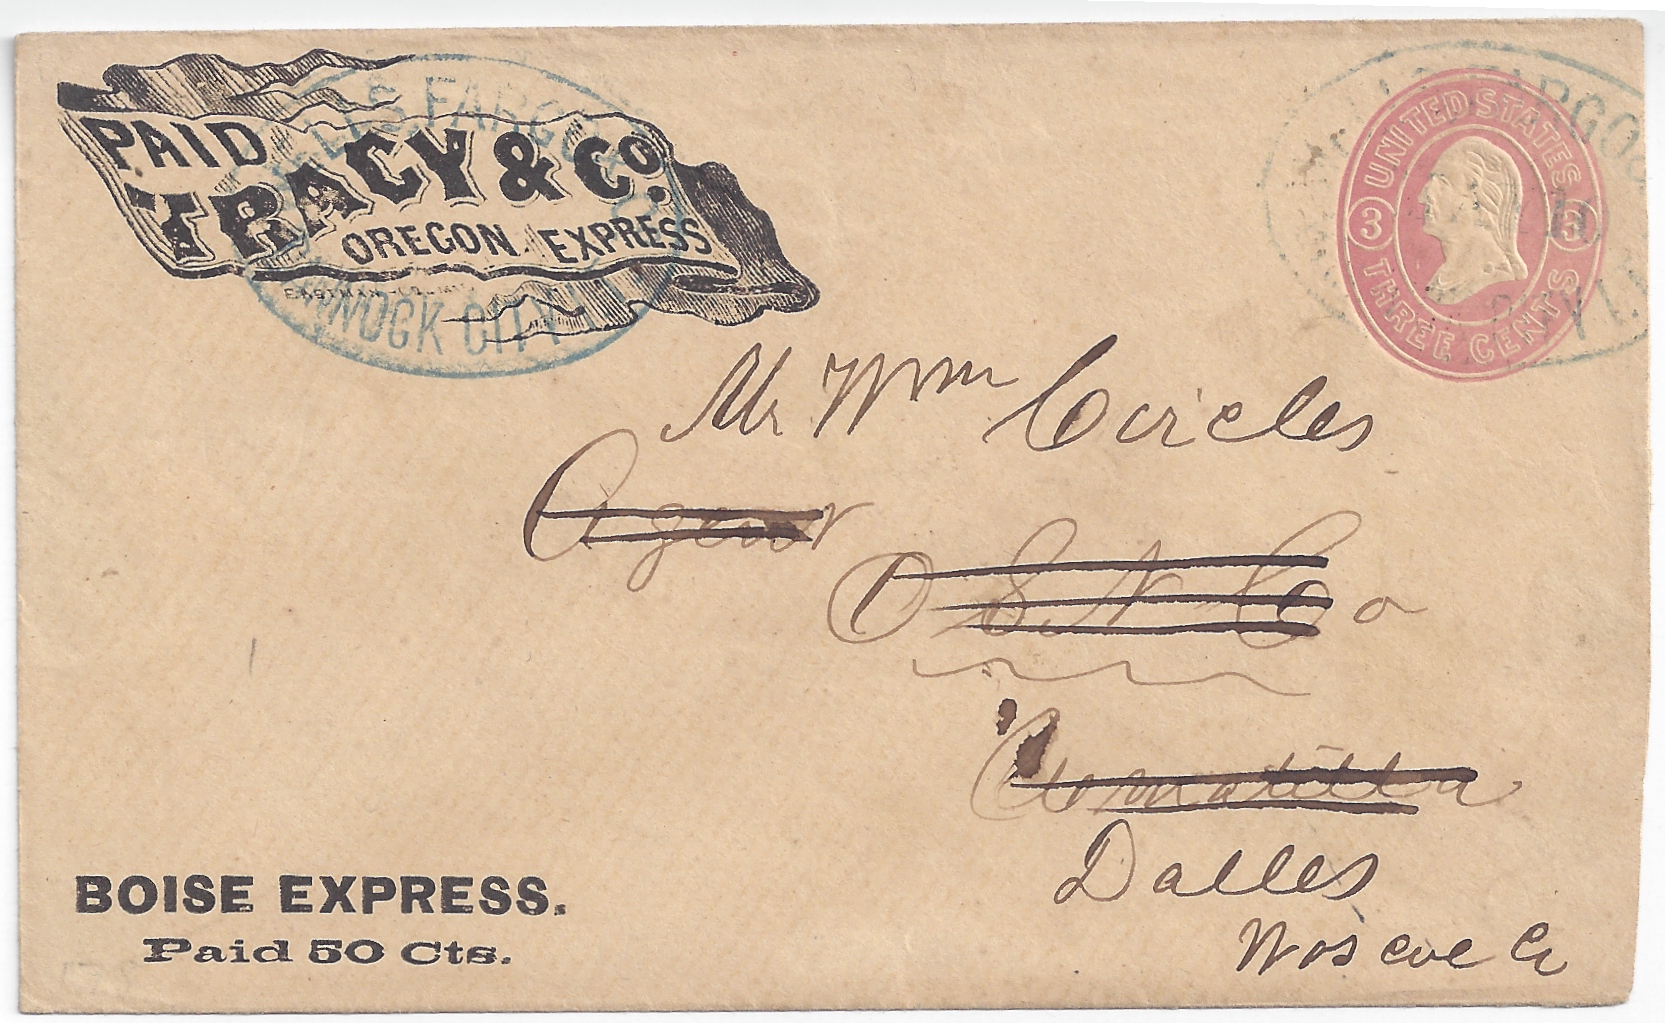 PAID
TRACY & Co.
OREGON EXPRESS
WELLS, FARGO & CO.
BANNOCK CITY
UNITED STATES
3 3
THREE CENTS
WELLS FARGO &
Mr Wmm Circles
Agent
O S N Co
Umatilla
Dalles
Wascoe Co
BOISE EXPRESS.
Paid 50 Cts.